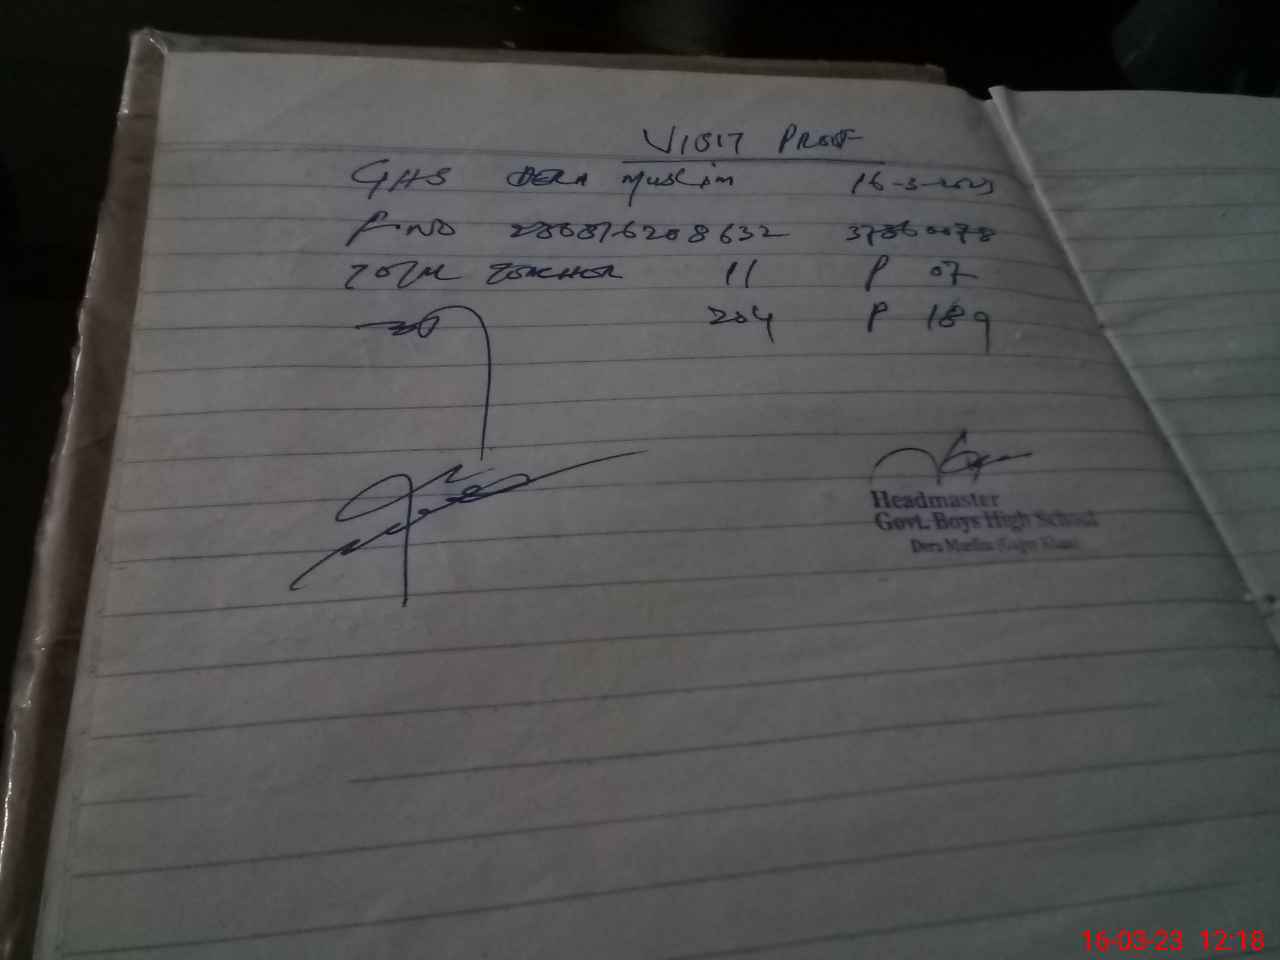 VISIT PROOF
GHS DERA Muslim 16-3-2023
P.NO 37860078
TOTAL TEACHER 11 P 07
204 P 189
Headmaster
Govt. Boys High School
Dera Muslim (Gujar Khan)
16-03-23 12:18